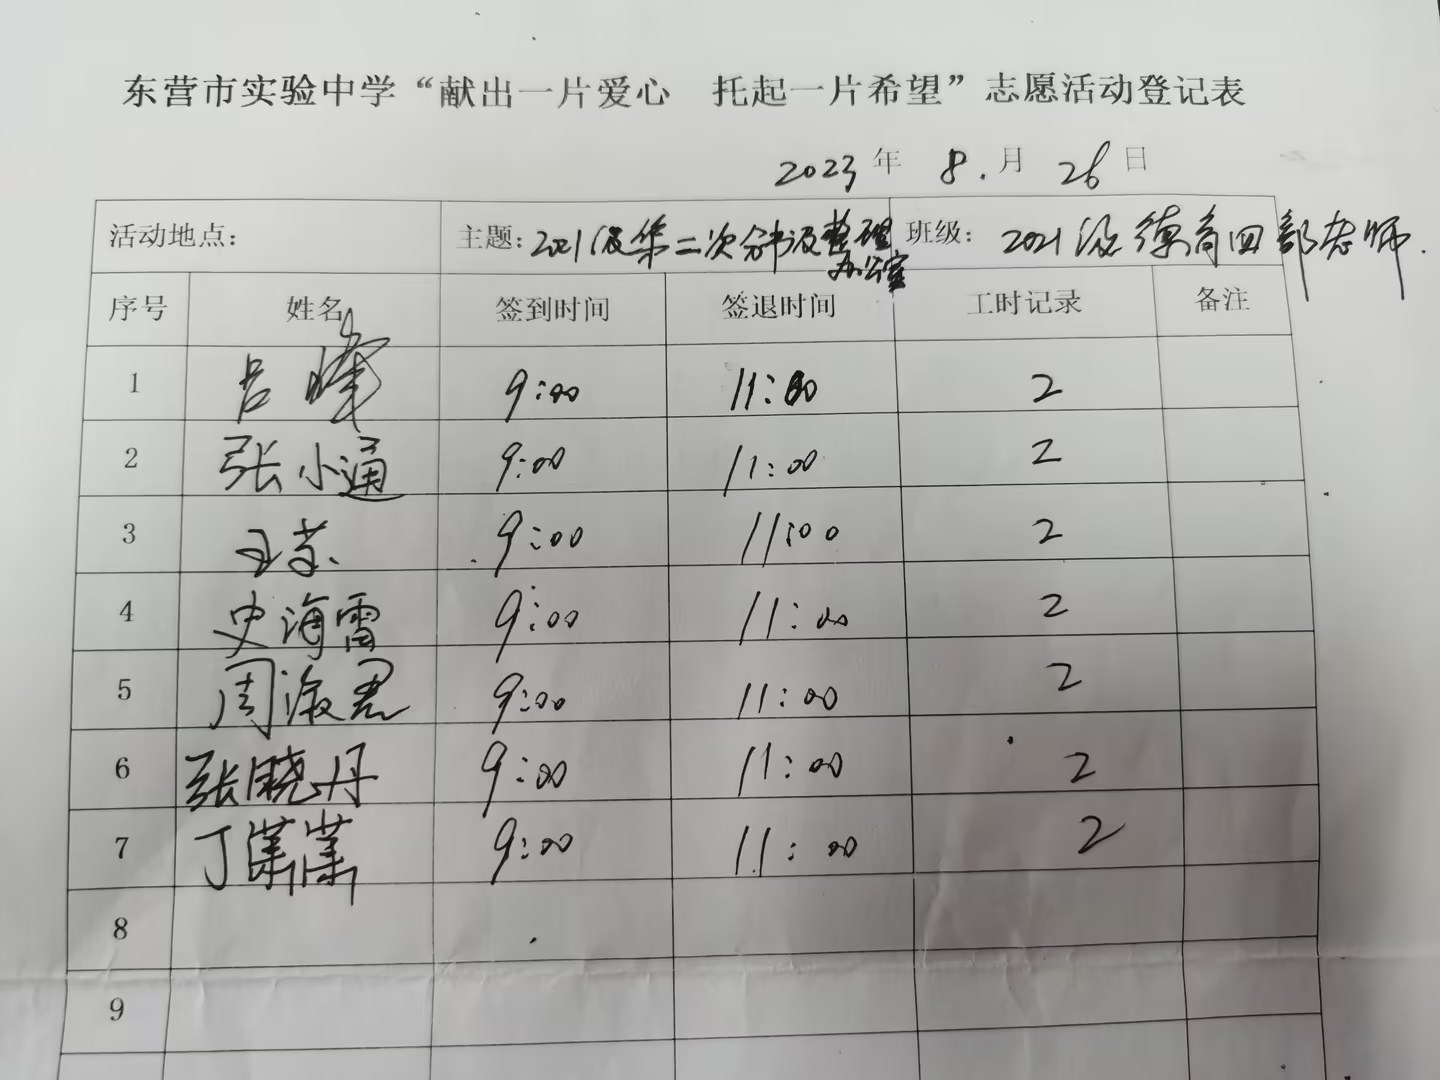 东营市实验中学“献出一片爱心 托起一片希望”志愿活动登记表
2023年 8.月 26日
活动地点: 主题: 2021级第二次分书及整理办公室 班级: 2021级德育四部老师.
序号 姓名 签到时间 签退时间 工时记录 备注
1 吕峰 9:00 11:00 2
2 张小通 9:00 11:00 2
3 王 9:00 11:00 2
4 史海雷 9:00 11:00 2
5 周淑君 9:00 11:00 2
6 张晓丹 9:00 11:00 2
7 丁潇潇 9:00 11:00 2
8
9